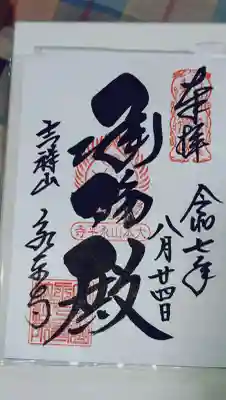 奉拝
令和七年
八月廿四日
承陽殿
大本山永平寺
吉祥山 永平寺